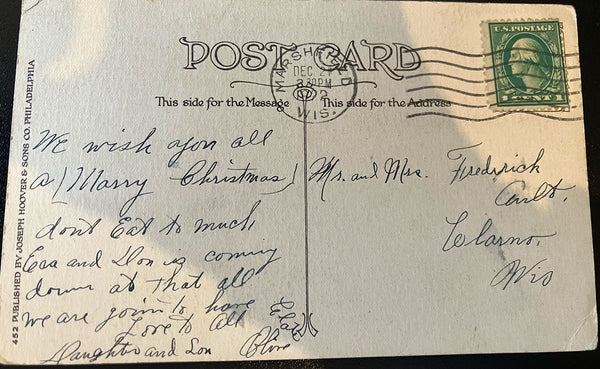 POST CARD
MARSHFIELD
DEC 2
30PM
2
WIS.
U.S. POSTAGE
1 CENT 1
This side for the Message
This side for the Address
452 PUBLISHED BY JOSEPH HOOVER & SONS CO. PHILADELPHIA
We wish you all
a (Marry Christmas)
dont Eat to much
Eva and Don is coming
down at that all
we are goin to have
Love to all
Daughter and Son Olive
Mr. and Mrs. Frederick
Clarno,
Wis